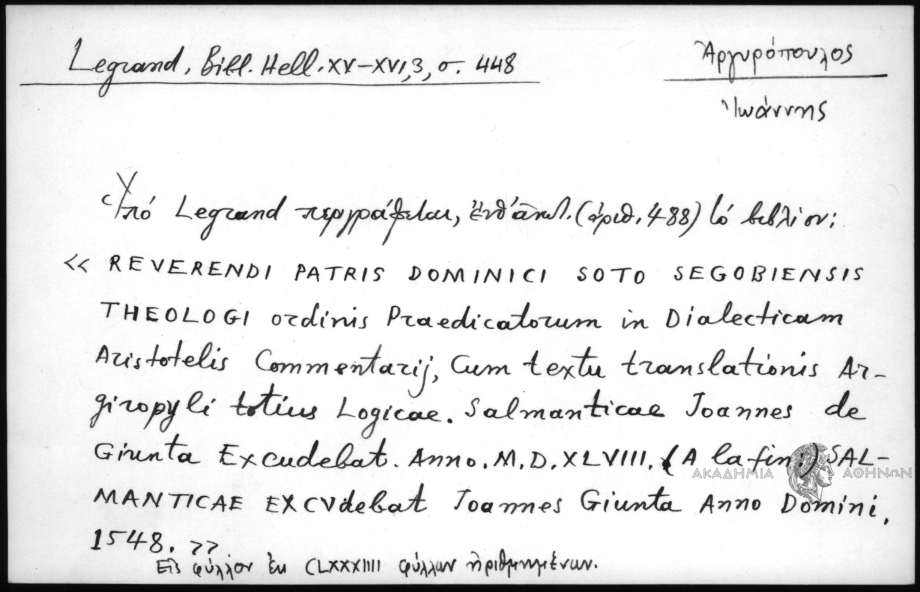 Legrand, Bibl. Hell. XV-XVI, 3, σ. 448
Ἀργυρόπουλος
Ἰωάννης
Ὑπό Legrand περιγράφεται, ἔνθ' ἀνωτ. (ἀριθ. 488) τό βιβλίον:
«REVERENDI PATRIS DOMINICI SOTO SEGOBIENSIS
THEOLOGI ordinis Praedicatorum in Dialecticam
Aristotelis Commentarij, Cum textu translationis Ar-
giropyli totius Logicae. Salmanticae Joannes de
Giunta Excudebat. Anno. M. D. XLVIII. (A la fin:) SAL-
MANTICAE EXCVdebat Joannes Giunta Anno Domini.
1548. »
Εἰς φύλλον ἐκ CLXXXIIII φύλλων ἠριθμημένων.
ΑΚΑΔΗΜΙΑ ΑΘΗΝΩΝ